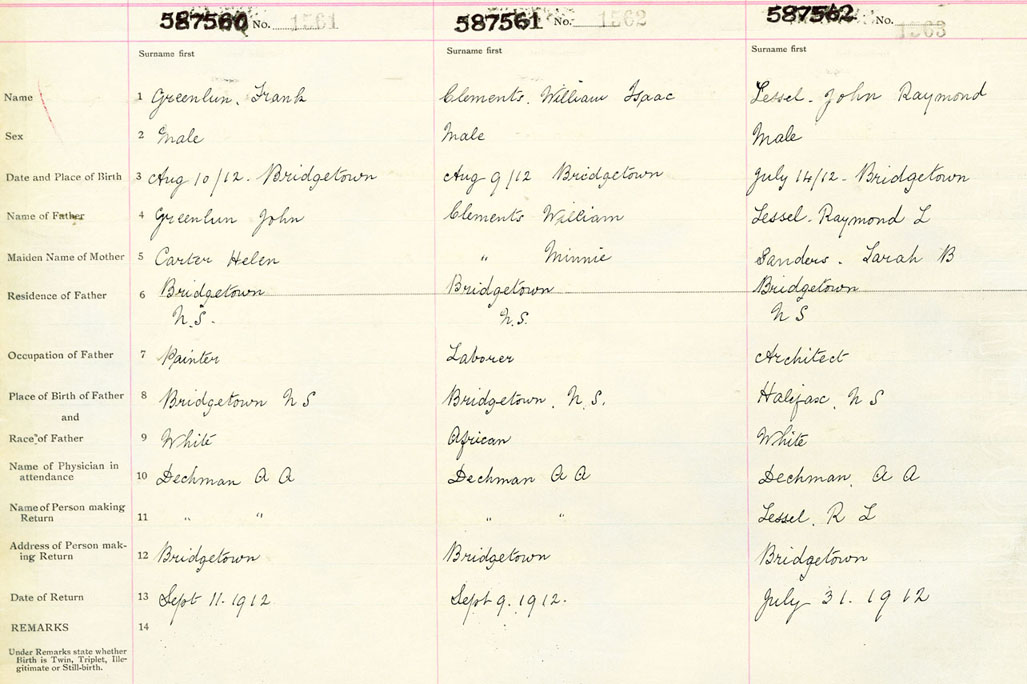 587560 No. 1561 587561 No. 1562 587562 No. 1563
Surname first Surname first Surname first
Name 1 Greenlun, Frank Clements, William Isaac Lessel - John Raymond
Sex 2 Male Male Male
Date and Place of Birth 3 Aug 10/12 - Bridgetown Aug 9/12 Bridgetown July 14/12 - Bridgetown
Name of Father 4 Greenlun John Clements William Lessel - Raymond L
Maiden Name of Mother 5 Carter Helen " Minnie Sanders - Sarah B
Residence of Father 6 Bridgetown Bridgetown Bridgetown
N.S. N.S. N S
Occupation of Father 7 Painter Laborer Architect
Place of Birth of Father 8 Bridgetown N S Bridgetown, N.S. Halifax, N S
and
Race of Father 9 White African White
Name of Physician in
attendance 10 Dechman A A Dechman A A Dechman, A A
Name of Person making
Return 11 " " " " Lessel, R L
Address of Person mak-
ing Return 12 Bridgetown Bridgetown Bridgetown
Date of Return 13 Sept 11 - 1912 Sept 9, 1912. July 31. 1912
REMARKS 14
Under Remarks state whether
Birth is Twin, Triplet, Ille-
gitimate or Still-birth.